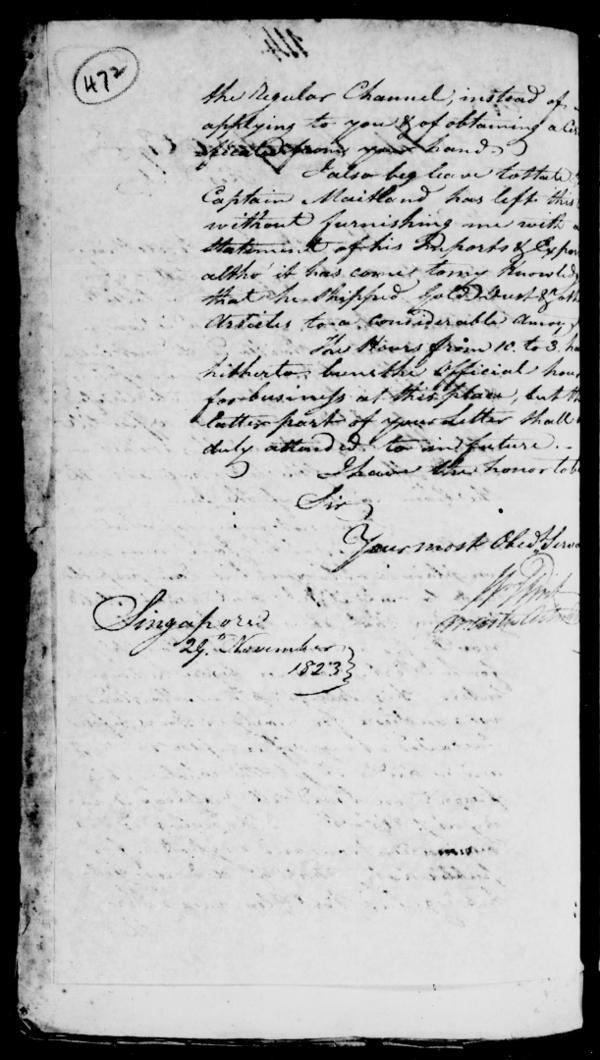 472
114
the Regular Channel, instead of
applying to you & of obtaining a Cer
ificate from your hand.
I also beg leave to state
Captain Maitland has left this
without furnishing me with a
Statement of his Imports & Expor
altho' it has come to my Knowled
that he Shipped Gold Dust &
Articles to a considerable amo
The Hours from 10. to 3. ha
hitherto been the Official hou
for business at this place, but th
latter part of your Letter shall
duly attended to in future.
I have the honor to be
Sir
Your most Obedt. Serva
Master
Singapore
29th November
1823